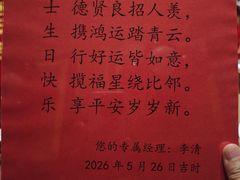 士 德贤良招人羡，
生 携鸿运踏青云。
日 行好运皆如意，
快 揽福星绕比邻。
乐 享平安岁岁新。
您的专属经理：李清
2026年5月26日吉时